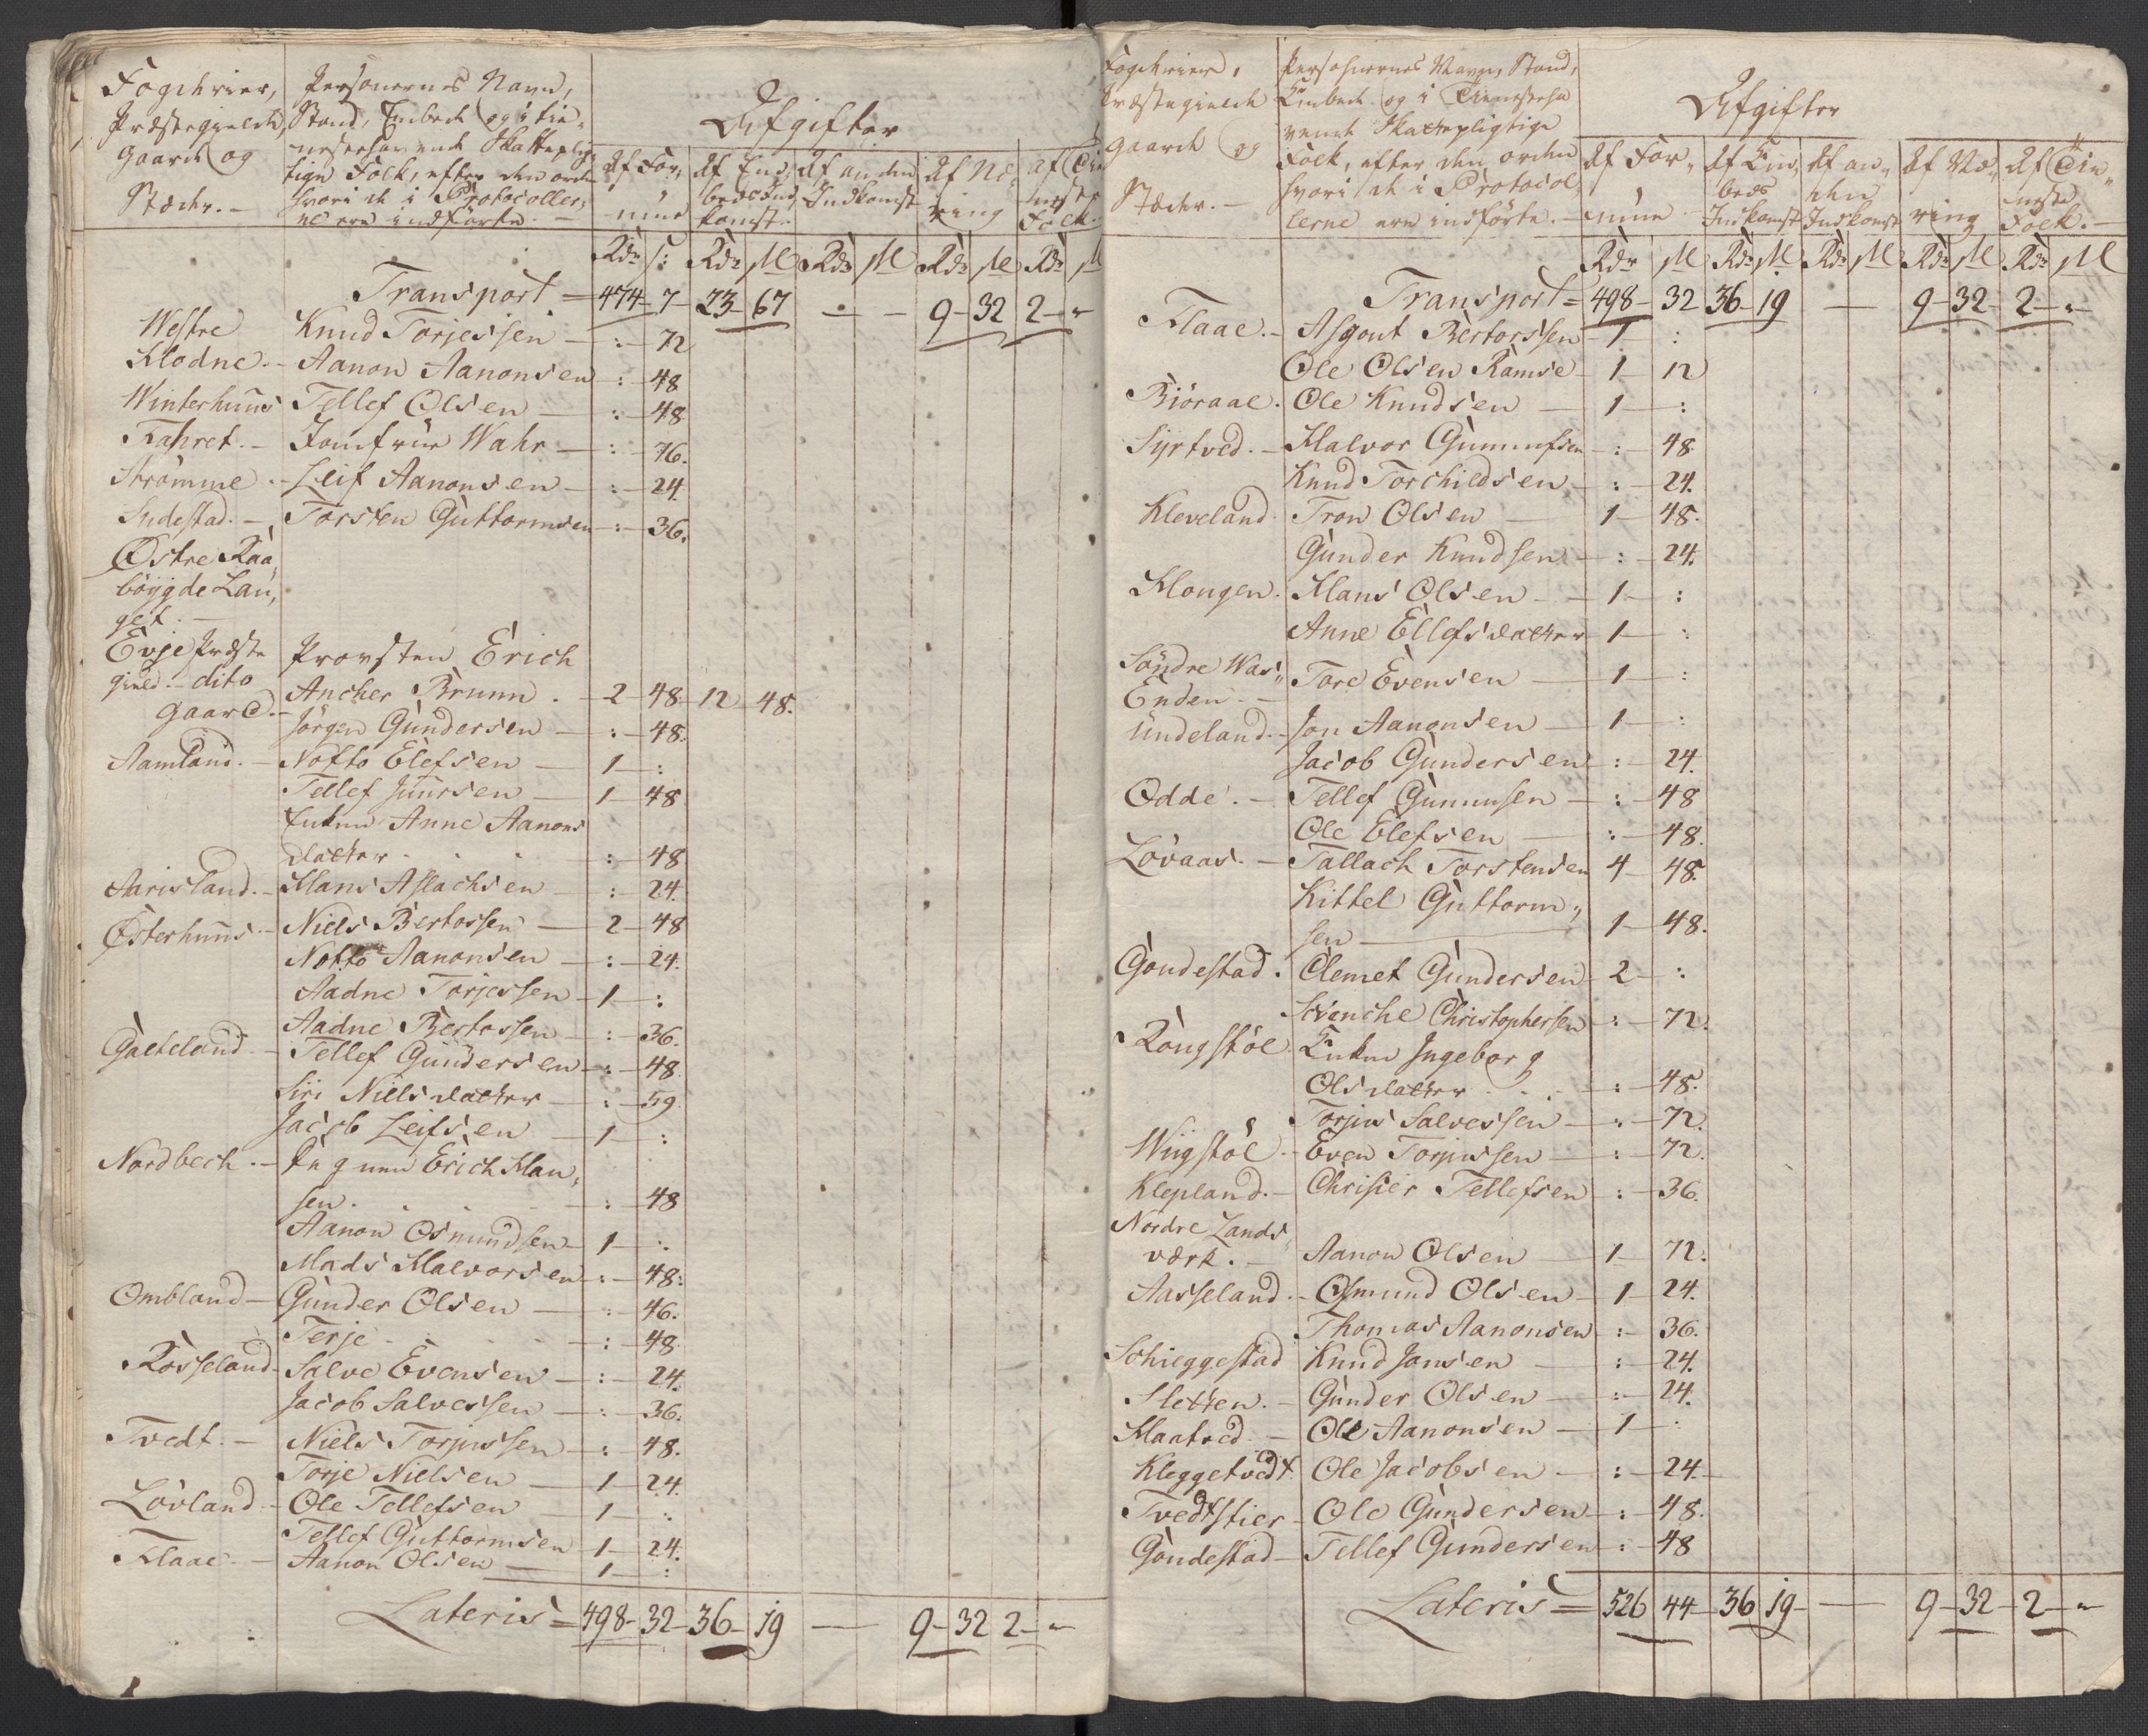 Fogderier,
Præstegielde,
Gaarde og
Stæder. -
Personernes Navn,
Stand, Embede og i tie-
nestehavende Skatteplig-
tige Folk, efter den orden
hvori de i Protocoller-
ne ere indførte. -
Afgifter
Af For- mue | Af Em- beds Ind- komst. | Af anden Indkomst | Af Næ- ring | Af Tie- neste Folk.
Rdr s: Rdr M Rdr M Rdr M Rdr M
Transport = 474 - 7 - 23 - 67 - - 9 - 32 2 - "
Westre Knud Torjessen - : - 72
Hodne. - Aanon Aanonsen - : - 48
Winterhuus Tellef Olsen - : - 48
Fahret. - Jomfrue Wahr - : - 76.
Strømme. - Leif Aanonsen - : - 24.
Sudestad. - Torsten Guttormsen - : - 36.
Østre Raa-
bøygde Lau-
get. -
Evje Præste Provsten Erich
gield. - dito
Gaard. - Ancher Brunn. - 2 - 48 - 12 - 48.
Jørgen Gundersen - : - 48.
Aamland. - Nofto Elefsen - 1 - :
Tellef Juursen - 1 - 48
Enken Anne Aanons
datter - : - 48
Aarisland. - Hans Aslachsen - : - 24.
Østerhuus - Niels Bertossen - 2 - 48
Notto Aanonsen - : - 24.
Aadne Torjessen - 1 - :
Aadne Bertossen - : - 36.
Gaeteland - Tellef Gundersen - : - 48
Siri Nielsdatter - : - 59
Jacob Leifsen - 1 - :
Nordbech. - Erich Han-
sen. - : - 48
Aanon Osmundsen - 1 - :
Mads Halvorsen - : - 48.
Ombland - Gunder Olsen - : - 46.
Terje - : - 48
Rosseland - Salve Evensen - : - 24.
Jacob Salvessen - : - 36.
Tvedt. - Niels Torjussen - : - 48.
Torje Nielsen - 1 - 24.
Løvland - Ole Tellefsen - 1 - :
Tellef Guttormsen - 1 - 24.
Flaae - Aanon Olsen - 1 - :
Lateris = 498 - 32 - 36 - 19 - 9 - 32 2 - "
Fogderier,
Præstegielde
Gaarde og
Stæder. -
Personernes Navn, Stand,
Embede og i Tienesteha
vende Skattepligtige
Folk, efter den orden
hvori de i Protocol-
lerne ere indførte. -
Afgifter
Af For- mue | Af Em- beds Indkomst | Af an- den Indkomst | Af Næ- ring | Af Tie- neste Folk. -
Rdr M Rdr M Rdr M Rdr M Rdr M
Transport = 498 - 32 36 - 19 - 9 - 32 - 2 - "
Flaae. - Asgout Bertorssen - 1 - :
Ole Olsen Ramse - 1 - 12
Biøraae. Ole Knudsen - 1 - :
Syrtved. - Halvor Gunnufsen - : - 48
Knud Torchildsen - : - 24.
Kleveland Tron Olsen - 1 - 48.
Gunder Knudsen - : - 24.
Hougen. Hans Olsen - 1 - :
Anne Ellefsdatter - 1 - :
Søndre Was-
Enden - Tore Evensen - 1 - :
Undeland. - Jon Aanonsen - 1 - :
Jacob Gundersen : - 24.
Odde. - Tellef Gunnusen - : - 48
Ole Elefsen - : - 48.
Løvaas. - Tallach Torstensen 4 - 48.
Kittel Guttorm-
sen - 1 - 48.
Goudestad. Clemet Gundersen - 2 - :
Svenche Christophersen : - 72.
Rougstøl Enken Ingeborg
Olsdatter : - 48.
Torjus Salvessen - : - 72.
Wiigstøl - Even Torjussen - : - 72.
Klepland. - Christer Tellefsen : - 36.
Nordre Lands-
værk. - Aanon Olsen - 1 - 72.
Aasseland. - Osmund Olsen - 1 - 24.
Thomas Aanonsen : - 36.
Schieggestad Knud Jonsen - : - 24.
Sletten. - Gunder Olsen - : - 24.
Haatved. - Ole Aanonsen - 1 -
Kleggetvedt. Ole Jacobsen - : - 24.
Tvedtstier - Ole Gundersen - : - 48.
Goudestad - Tellef Gundersen - : - 48
Lateris = 526 44 - 36 19 - 9 - 32 - 2 - "